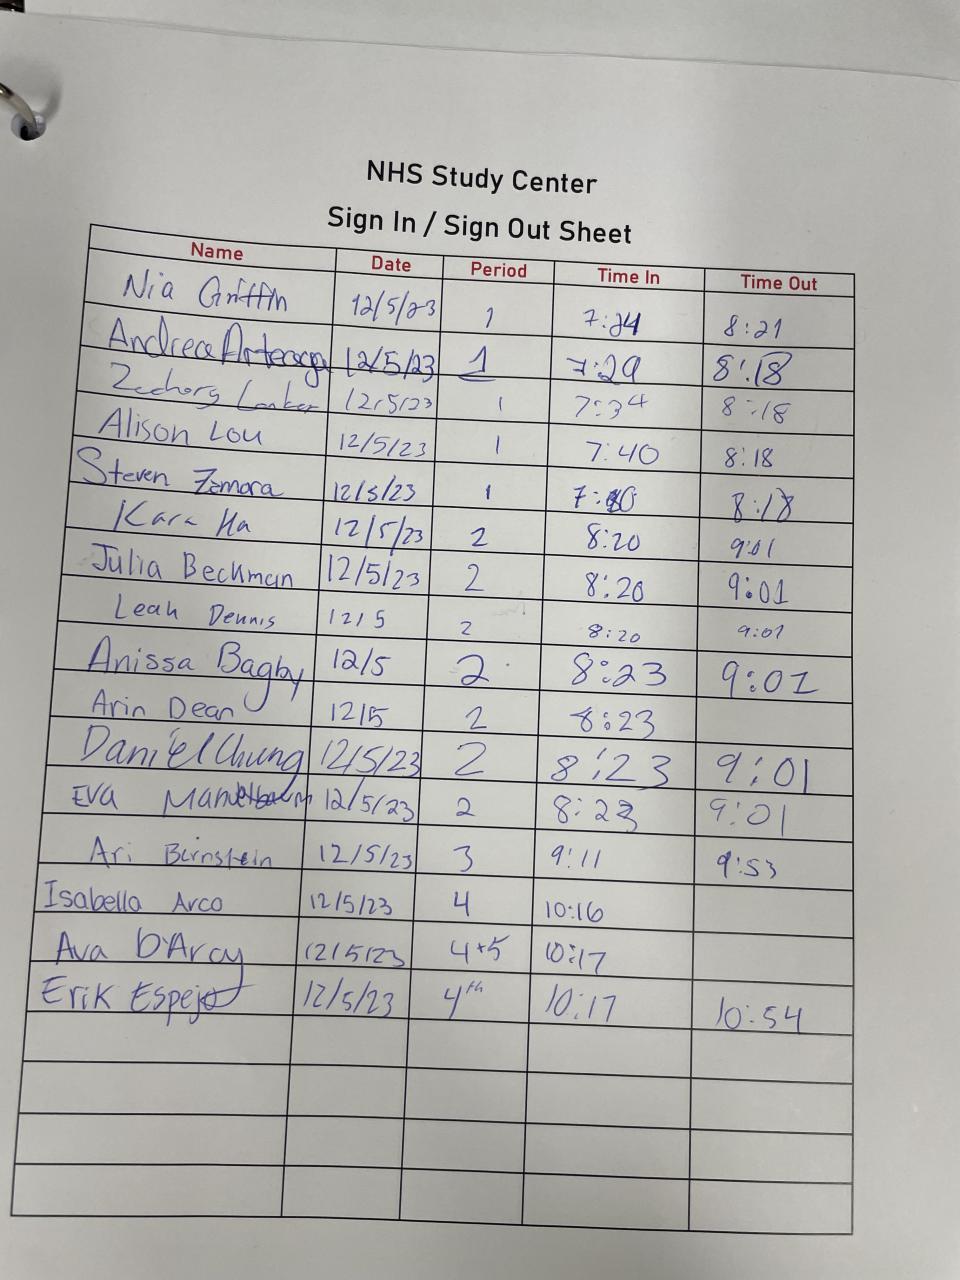 NHS Study Center
Sign In / Sign Out Sheet
Name Date Period Time In Time Out
Nia Griffin 12/5/23 1 7:24 8:21
Andrea Arteaga 12/5/23 1 7:29 8:18
Zachary 12/5/23 1 7:34 8:18
Alison Lou 12/5/23 1 7:40 8:18
Steven Zamora 12/5/23 1 8:18
Kara Ha 12/5/23 2 8:20 9:01
Julia Beckman 12/5/23 2 8:20 9:01
Leah Dennis 12/5 2 8:20 9:01
Anissa Bagby 12/5 2 8:23 9:01
Arin Dean 12/5 2 8:23
Daniel Chung 12/5/23 2 8:23 9:01
Eva Mandelbaum 12/5/23 2 8:23 9:01
Ari Birnstein 12/5/23 3 9:11 9:53
Isabella Arco 12/5/23 4 10:16
Ava D'Arcy 12/5/23 4+5 10:17
Erik Espejo 12/5/23 4th 10:17 10:54